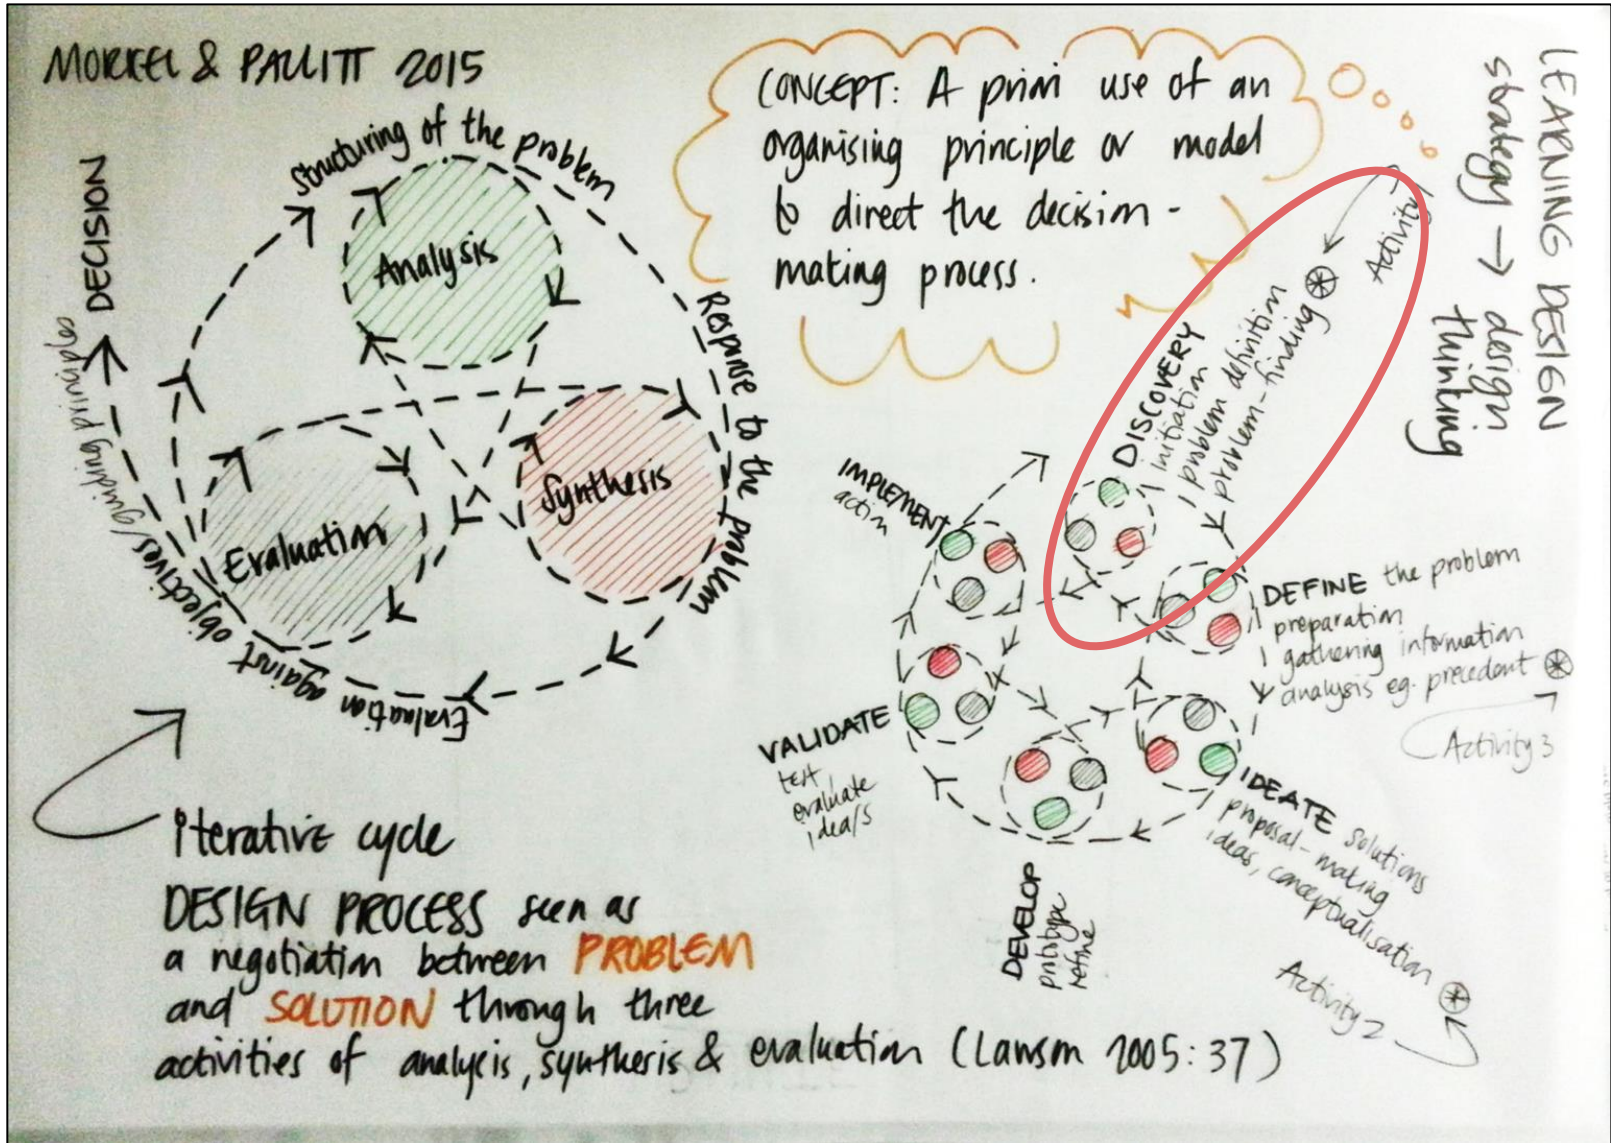 MORKEL & PALLITT 2015
DECISION
Structuring of the problem
Analysis
Response to the problem
Synthesis
Evaluation
Evaluation against objectives/guiding principles
CONCEPT: A priori use of an
organising principle or model
to direct the decision-
making process.
LEARNING DESIGN
strategy → design
thinking
DISCOVERY
initiation
problem definition
problem-finding
Activity 1
DEFINE the problem
preparation
gathering information
analysis eg. precedent
Activity 3
IDEATE solutions
proposal-making
ideas, conceptualisation
Activity 2
DEVELOP
prototype
refine
VALIDATE
test
evaluate
idea/s
IMPLEMENT
action
iterative cycle
DESIGN PROCESS seen as
a negotiation between PROBLEM
and SOLUTION through three
activities of analysis, synthesis & evaluation (Lawson 2005:37)